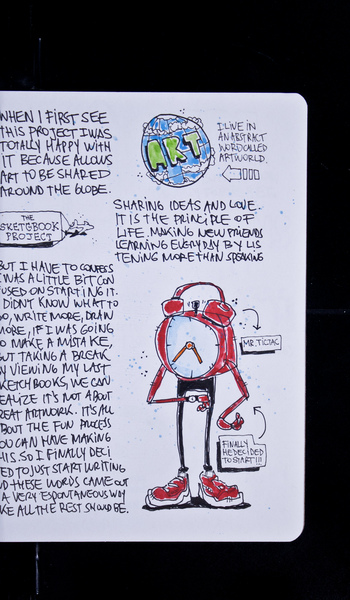 WHEN I FIRST SEE
THIS PROJECT I WAS
TOTALLY HAPPY WITH
IT BECAUSE ALLOWS
ART TO BE SHARED
AROUND THE GLOBE.
THE
SKETGBOOK
PROJECT
BUT I HAVE TO CONFESS
I WAS A LITTLE BIT CON
FUSED ON STARTING IT.
I DIDNT KNOW WHAT TO
DO, WRITE MORE, DRAW
MORE, IF I WAS GOING
TO MAKE A MISTAKE,
BUT TAKING A BREAK
BY VIEWING MY LAST
SKETCHBOOKS, WE CAN
REALIZE IT'S NOT ABOUT
GREAT ARTWORK. IT'S ALL
ABOUT THE FUN PROCESS
YOU CAN HAVE MAKING
THIS. SO I FINALLY DECI
DED TO JUST START WRITING
AND THESE WORDS CAME OUT
A VERY ESPONTANEOUS WAY
LIKE ALL THE REST SHOULD BE.
ART
I LIVE IN
AN ABSTRACT
WORD CALLED
ARTWORLD.
SHARING IDEAS AND LOVE.
IT IS THE PRINCIPLE OF
LIFE. MAKING NEW FRIENDS
LEARNING EVERYDAY BY LIS
TENING MORE THAN SPEAKING
MR. TICTAC
FINALLY
HE DECIDED
TO START!!!